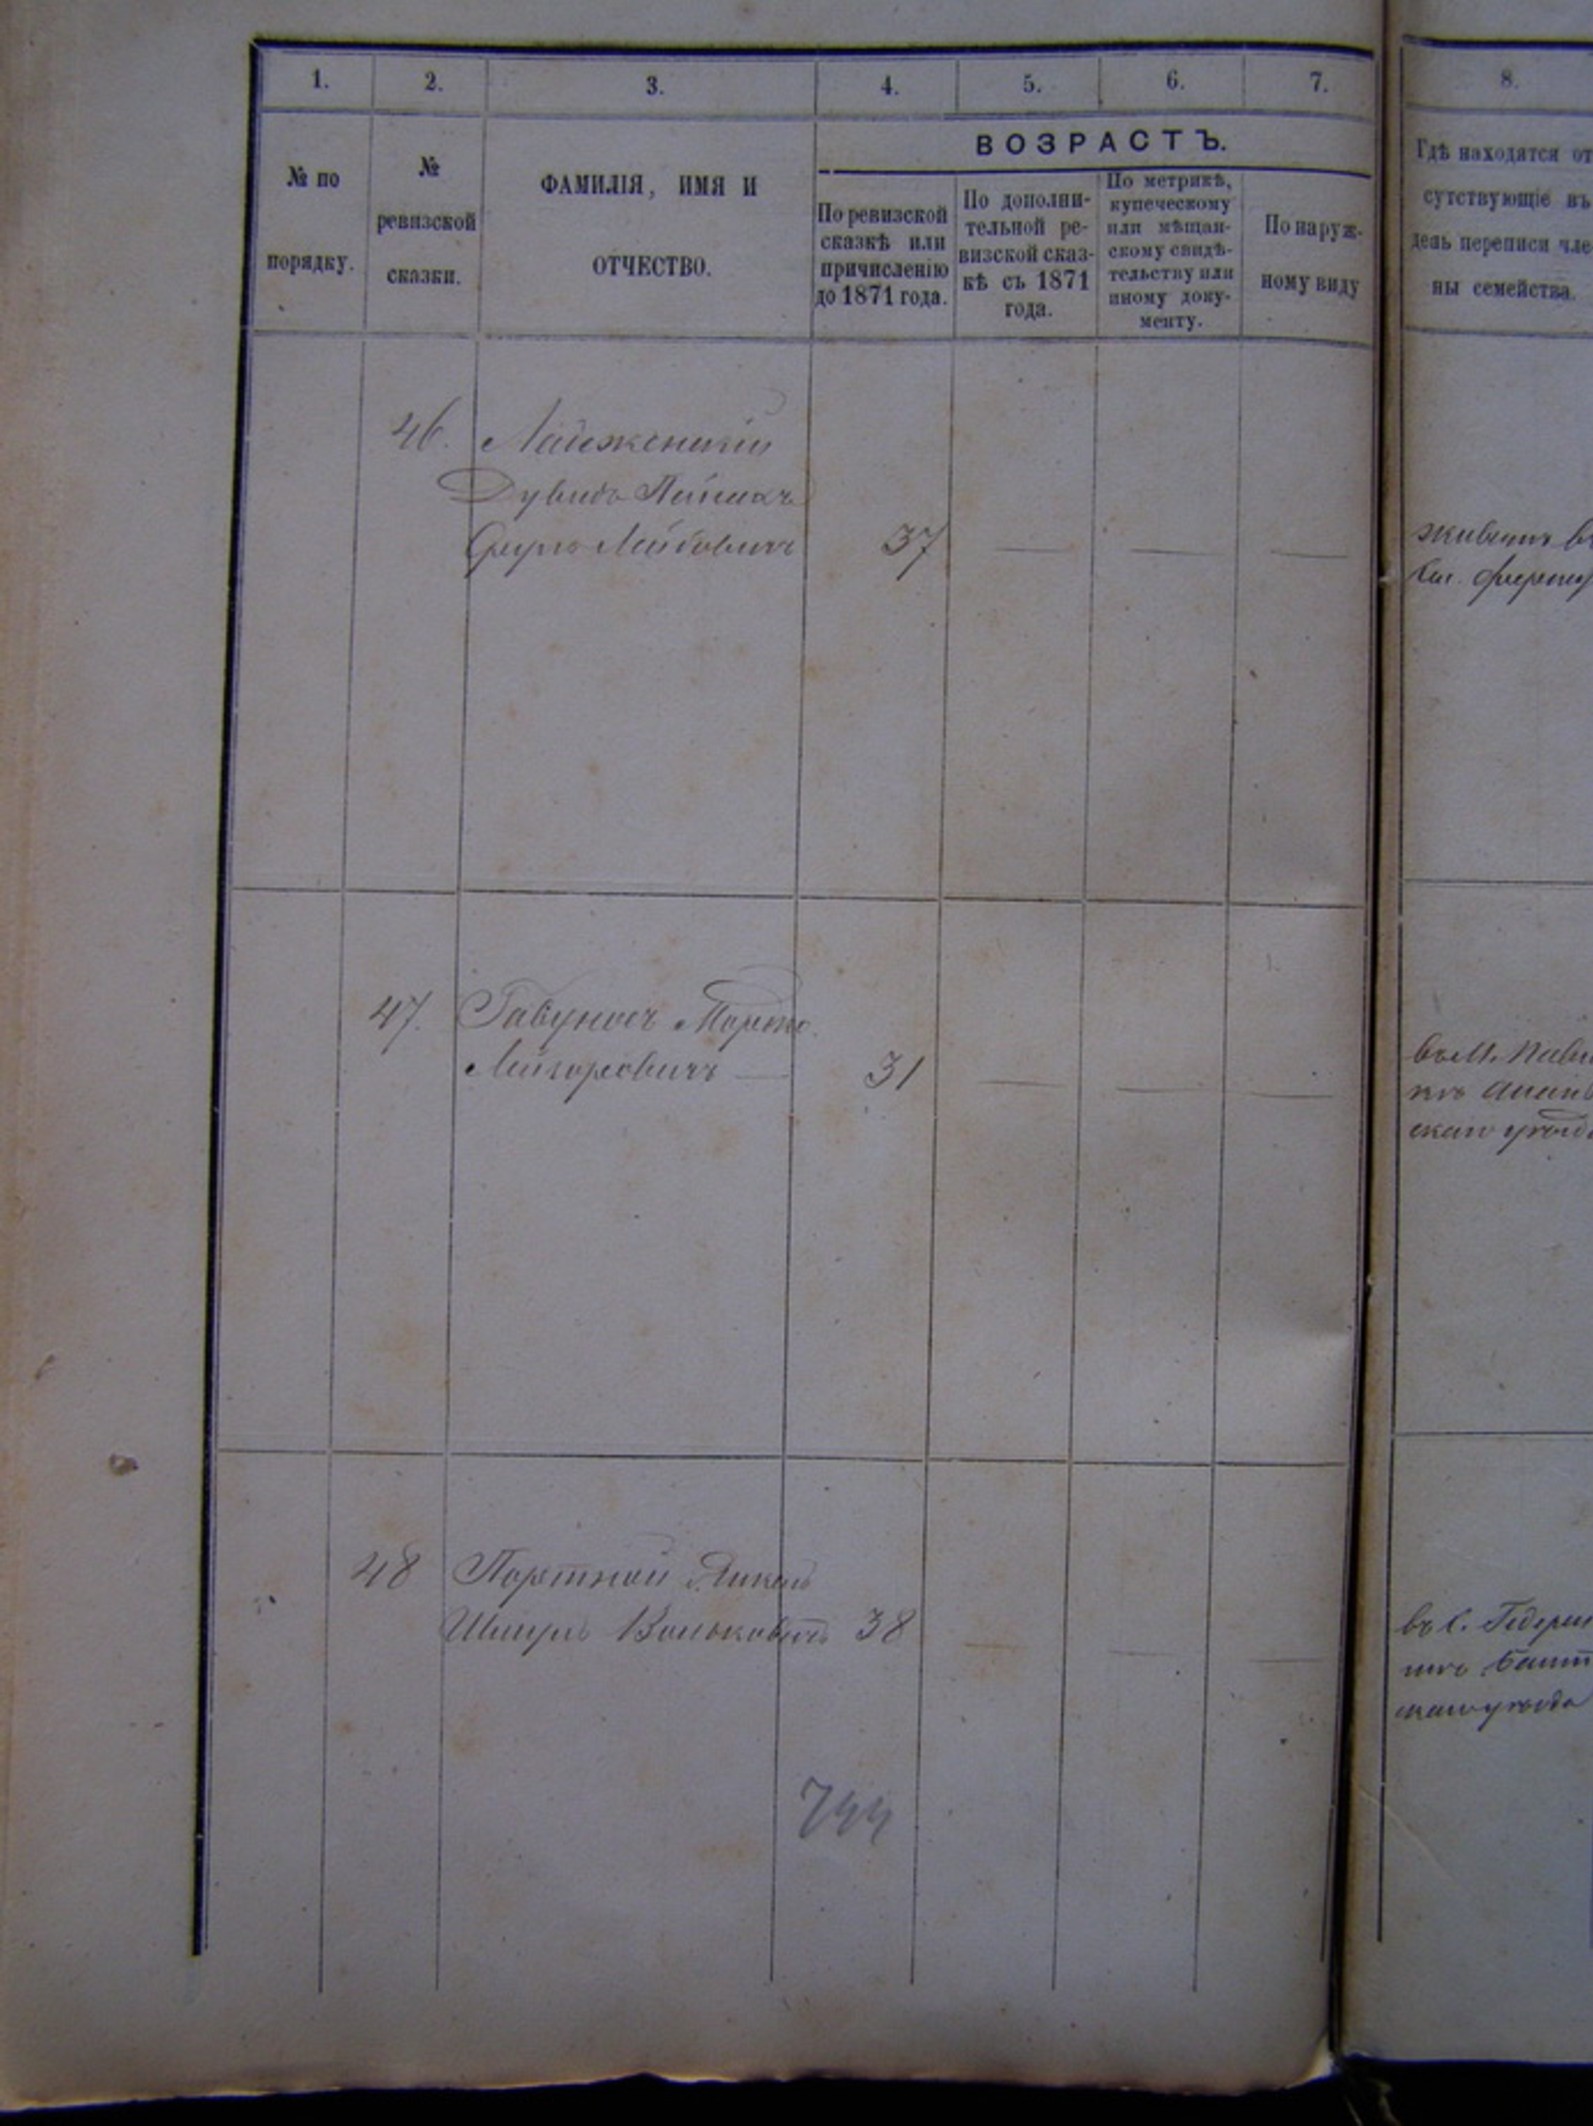 1. 2. 3. 4. 5. 6. 7. 8.
№ по порядку.
№ ревизской сказки.
ФАМИЛІЯ, ИМЯ И
ОТЧЕСТВО.
ВОЗРАСТЪ.
По ревизской
сказкѣ или
причисленію
до 1871 года.
По дополни-
тельной ре-
визской сказ-
кѣ съ 1871
года.
По метрикѣ,
купеческому
или мѣщан-
скому свидѣ-
тельству или
иному доку-
менту.
По наруж-
ному виду
Гдѣ находятся от
сутствующіе въ
день переписи чле
ны семейства.
46.
Дувидъ
Лейбовичъ 37 — — —
живетъ въ
47. Мортко
31 — — —
въ М.
скаго уѣзда
48 Портной Янкель
Шмуль Вольковичъ 38 — — —
въ с.
скаго уѣзда
744